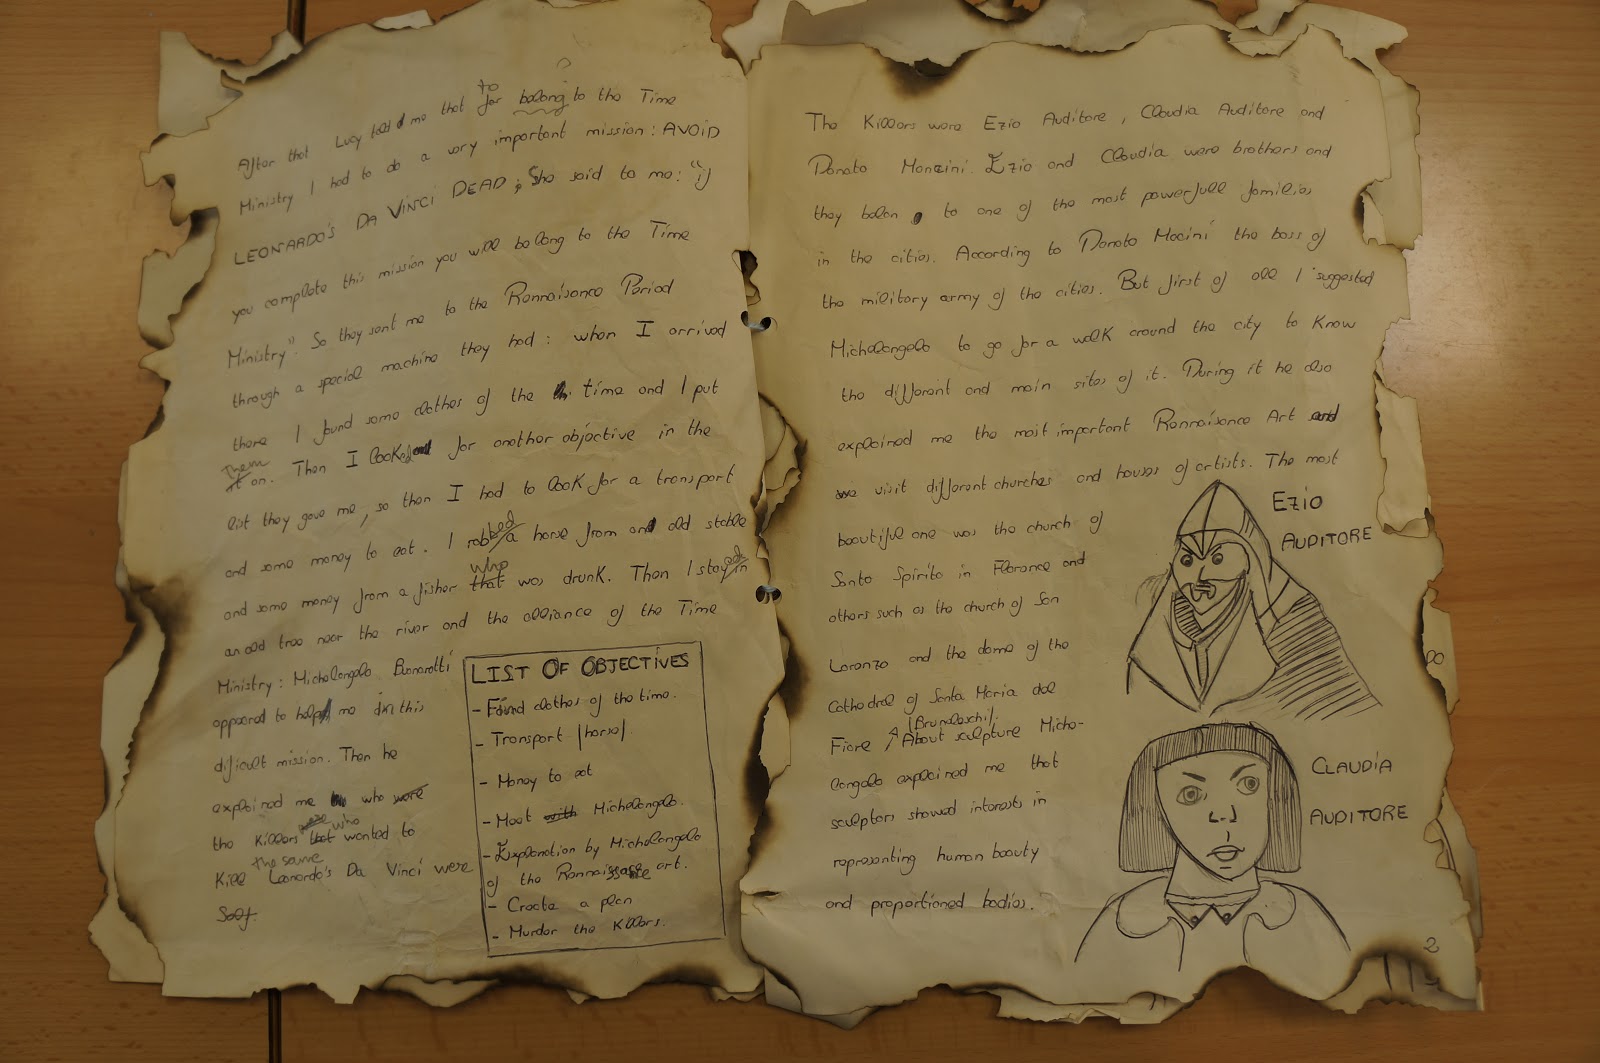 After that Lucy told me that to for belong to the Time
?
Ministry I had to do a very important mission: AVOID
LEONARDO'S DA VINCI DEAD; She said to me: "if
you complete this mission you will belong to the Time
Ministry". So they sent me to the Rennaisance Period
through a special machine they had: when I arrived
there I found some clothes of the time and I put
them it on. Then I looked for another objective in the
list they gave me, so then I had to look for a transport
and some money to eat. I robbed a horse from an old stable
and some money from a fisher who that was drunk. Then I stayed in
an old tree near the river and the alliance of the Time
Ministry: Michelangelo Bunarotti
appeared to help me in this
dificult mission. Then he
explained me who were
the Killers that were who wanted to
Kill Leonardo's Da Vinci were
the same
Self.
LIST OF OBJECTIVES
- Found clothes of the time.
- Transport (horse).
- Money to eat
- Meet with Michelangelo.
- Explanation by Michelangelo
of the Rennaissance art.
- Create a plan
- Murder the Killers.
The Killers were Ezio Auditore, Claudia Auditore and
Donato Manzini. Ezio and Claudia were brothers and
they belon to one of the most powerfull families
in the cities. According to Donato Mocini the boss of
the military army of the cities. But first of all I suggested
Michelangelo to go for a walk around the city to Know
the different and main sites of it. During it he also
explained me the most important Rennaisance Art and
we visit different churches and houses of artists. The most
beautiful one was the church of
Santo Spirito in Florence and
others such as the church of San
Lorenzo and the dome of the
Cathedral of Santa Maria del
Fiore (Bruneleschi). About sculpture Miche-
langelo explained me that
sculptors showed interests in
representing human beauty
and proportioned bodies.
EZIO
AUDITORE
CLAUDIA
AUDITORE
2